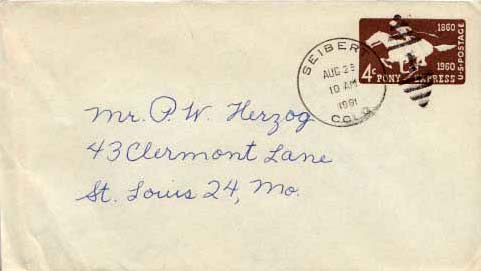 1860
1960
U.S. POSTAGE
4¢ PONY EXPRESS
SEIBERT
AUG 23
10 AM
1961
COLO.
Mr. P. W. Herzog
43 Clermont Lane
St. Louis 24, Mo.